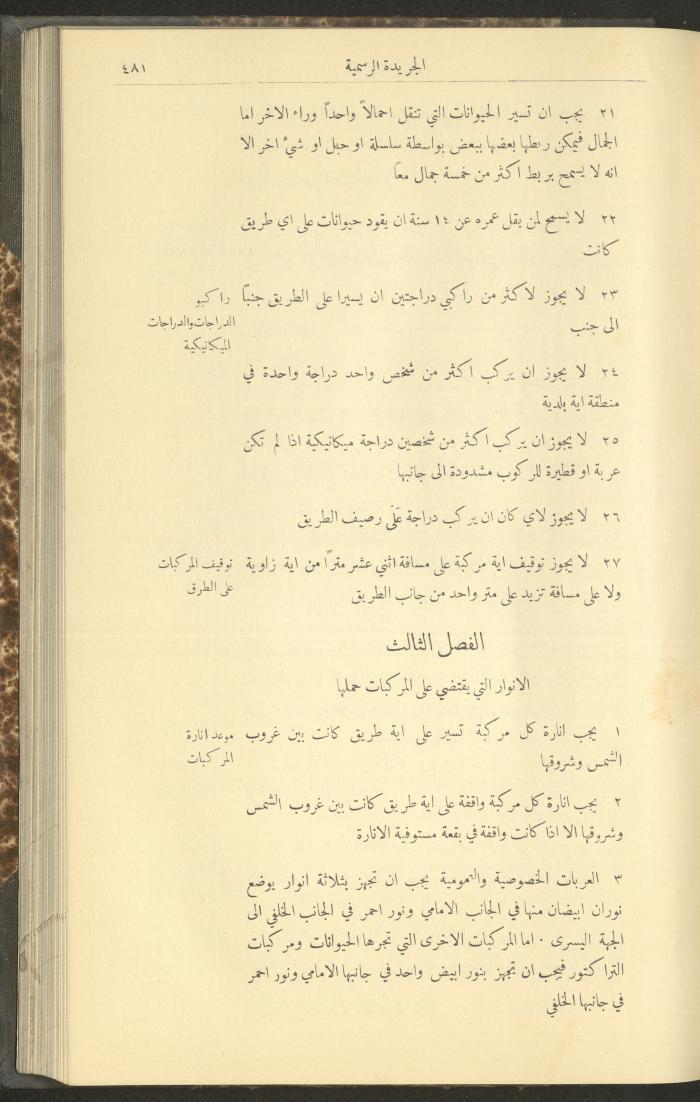 الجريدة الرسمية
٤٨١
٢١ يجب ان تسير الحيوانات التي تنقل احمالاً واحداً وراء الاخر اما
الجمال فيمكن ربطها بعضها ببعض بواسطة سلسلة او حبل او شيء اخر الا
انه لا يسمح بربط اكثر من خمسة جمال معاً
٢٢ لا يسمح لمن يقل عمره عن ١٤ سنة ان يقود حيوانات على اي طريق
كانت
٢٣ لا يجوز لاكثر من راكبي دراجتين ان يسيرا على الطريق جنباً
الى جنب
راكبو
الدراجات والدراجات
الميكانيكية
٢٤ لا يجوز ان يركب اكثر من شخص واحد دراجة واحدة في
منطقة اية بلدية
٢٥ لا يجوز ان يركب اكثر من شخصين دراجة ميكانيكية اذا لم تكن
عربة او قطيرة للركوب مشدودة الى جانبها
٢٦ لا يجوز لاي كان ان يركب دراجة على رصيف الطريق
٢٧ لا يجوز توقيف اية مركبة على مسافة اثني عشر متراً من اية زاوية
ولا على مسافة تزيد على متر واحد من جانب الطريق
توقيف المركبات
على الطرق
الفصل الثالث
الانوار التي يقتضي على المركبات حملها
١ يجب انارة كل مركبة تسير على اية طريق كانت بين غروب
الشمس وشروقها
موعد انارة
المركبات
٢ يجب انارة كل مركبة واقفة على اية طريق كانت بين غروب الشمس
وشروقها الا اذا كانت واقفة في بقعة مستوفية الانارة
٣ العربات الخصوصية والعمومية يجب ان تجهز بثلاثة انوار يوضع
نوران ابيضان منها في الجانب الامامي ونور احمر في الجانب الخلفي الى
الجهة اليسرى ٠ اما المركبات الاخرى التي تجرها الحيوانات ومركبات
التراكتور فيجب ان تجهز بنور ابيض واحد في جانبها الامامي ونور احمر
في جانبها الخلفي